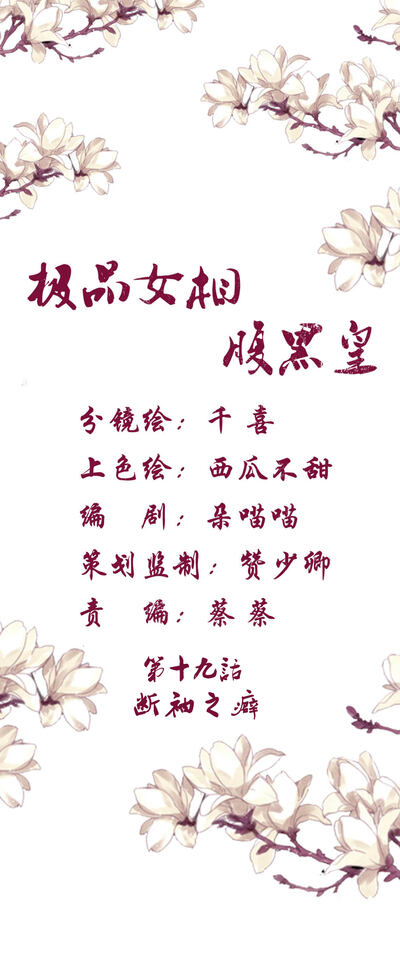 极品女相
腹黑皇
分镜绘：千喜
上色绘：西瓜不甜
编　剧：朵喵喵
策划监制：赞少卿
责　编：蔡蔡
第十九話
断袖之癖